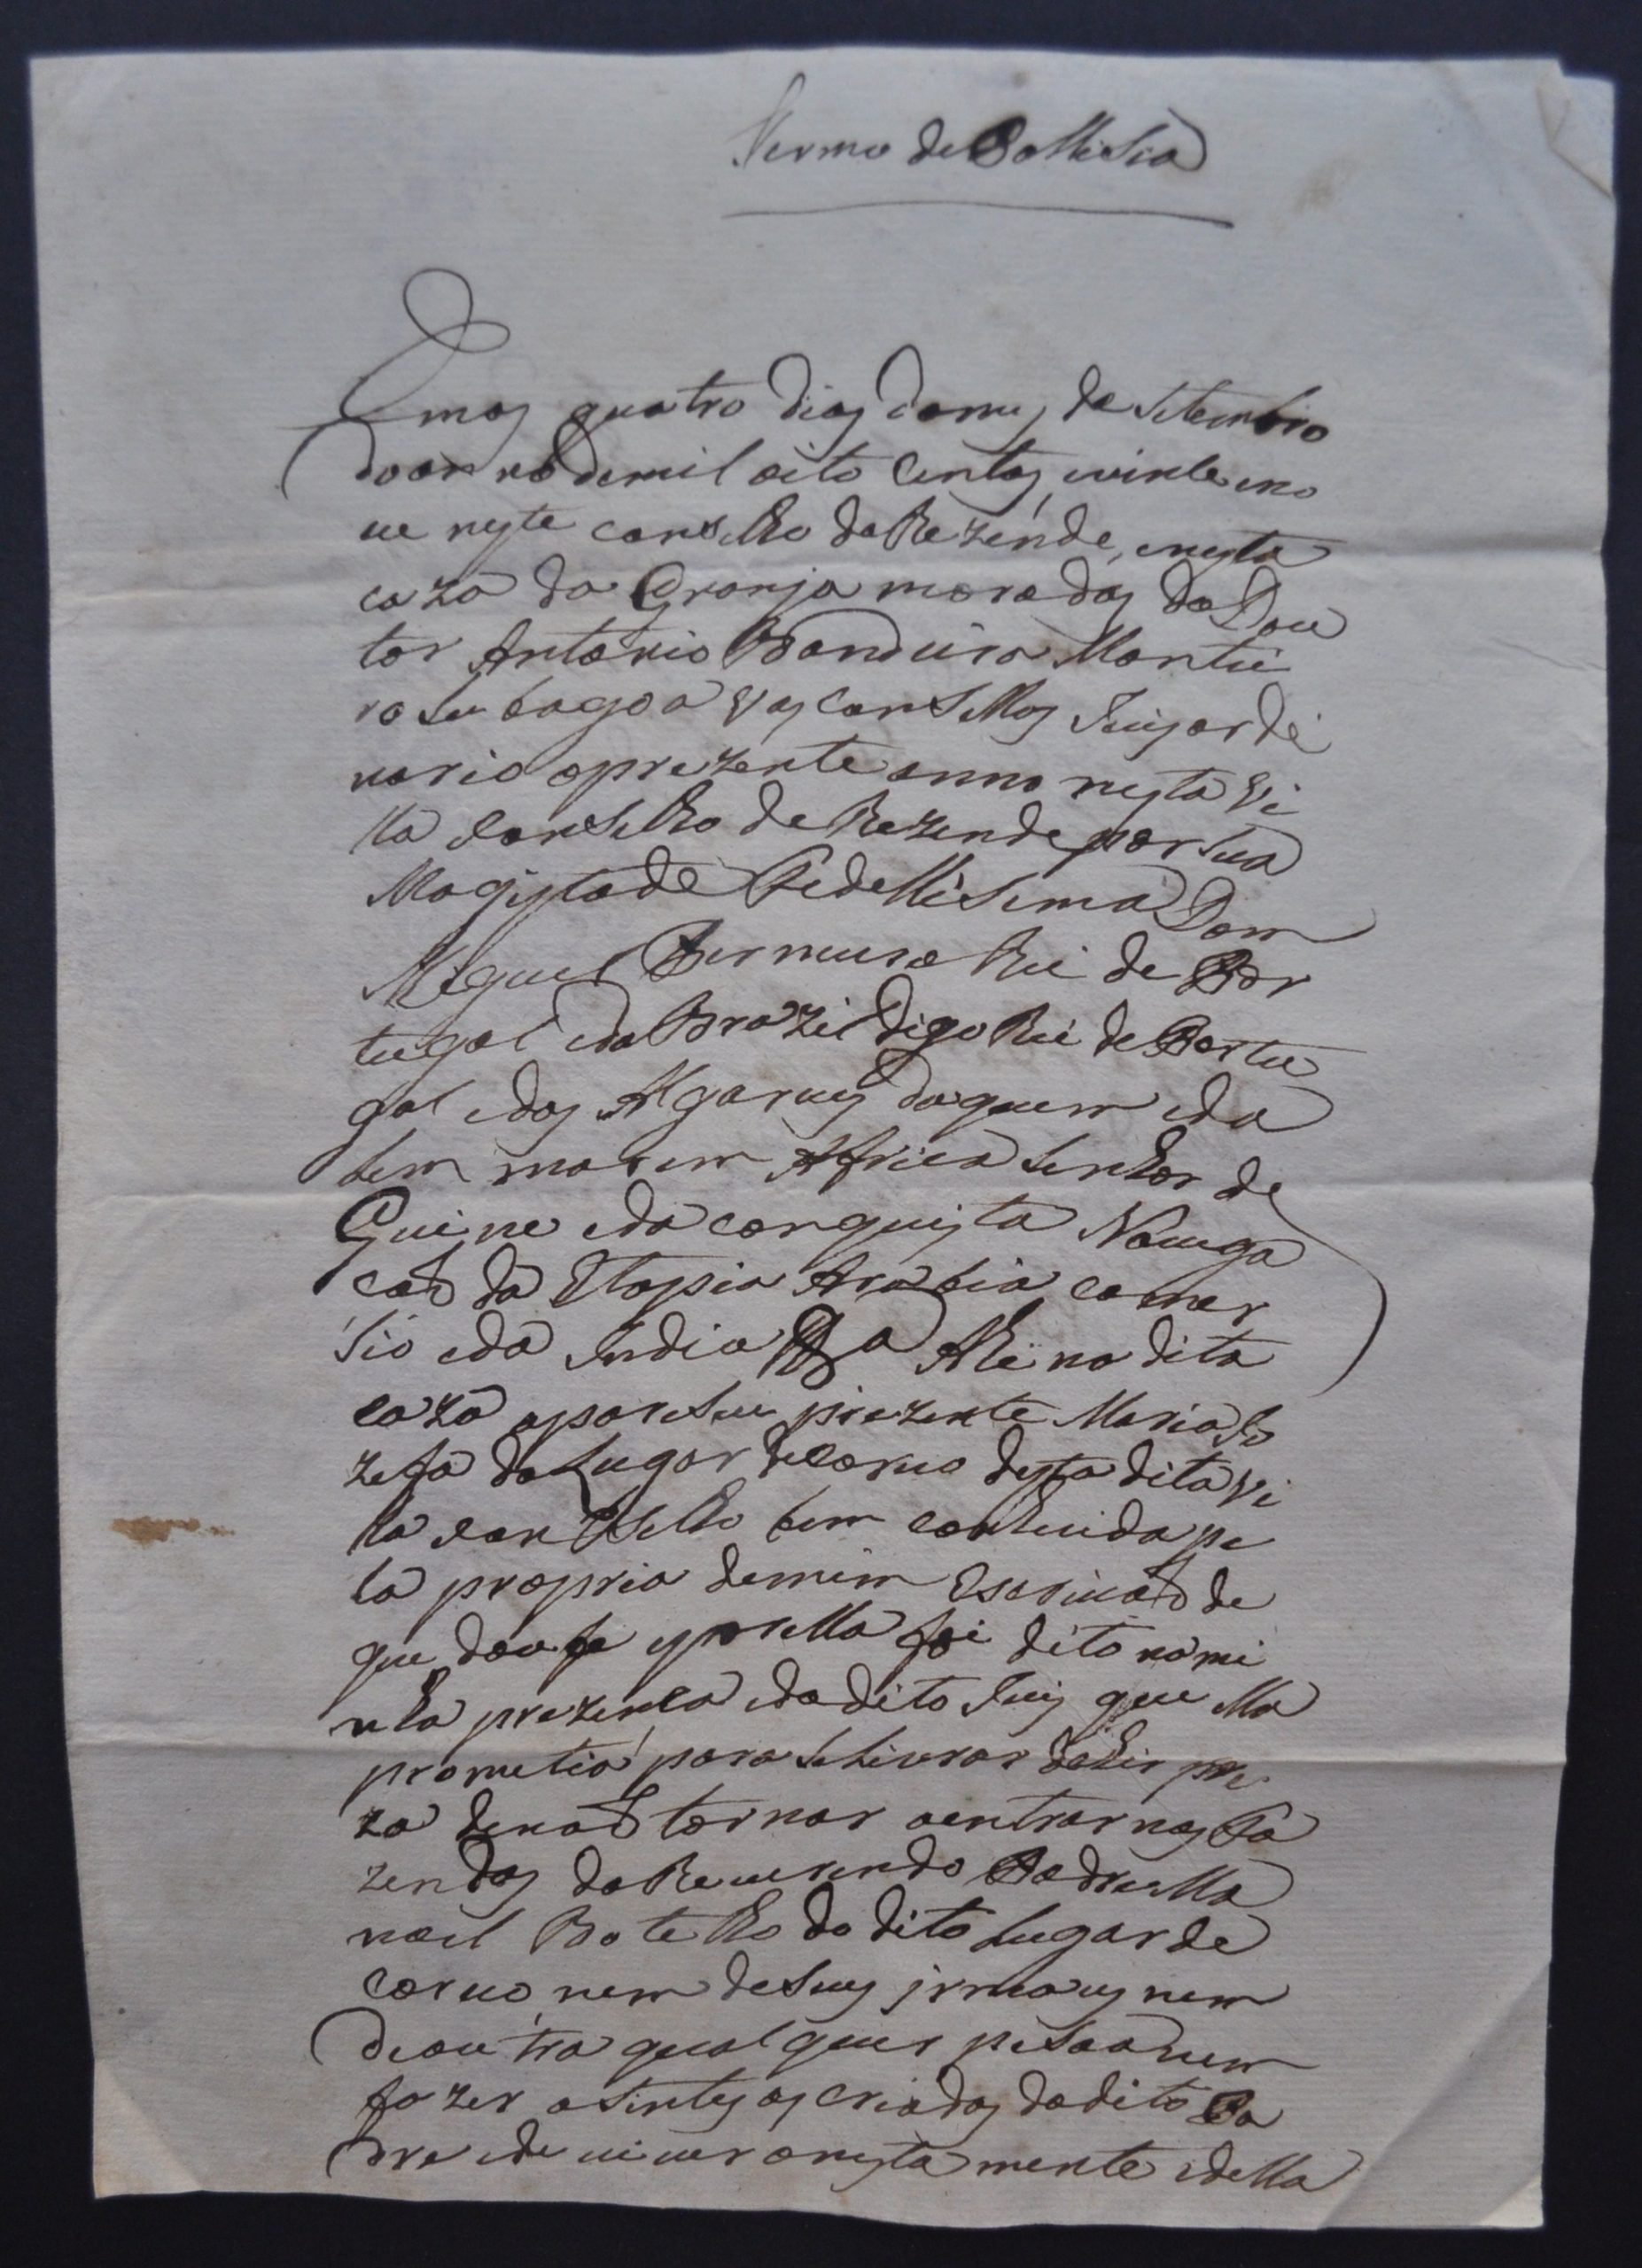 Termo de Pollisia
Emos quatro dias domes de Setembro
doanno demil oito Centos evinte eno
ve neste conselho de Rezende, enesta
caza da Granja moradas do Dou
tor Antonio Bandeira Montei
ro Su bagoa Vas conSellos Juis ordi
nario oprezente anno nesta Vi
lla e conSelho de Rezende por Sua
Magestade Fedellisima Dom
Meguel Permeiro Rei de Por
tugal edo Brazil digo Rei de Portu
gal edos Algarues daquem eda
lem marem Africa Senhor de
Guine eda conquista Nauega
cao da Etiopia Arabia comer
Sio eda India &a Ahi na dita
caza apareseu prezente Maria Jo
zefa do Lugar de Coruo desta dita Vi
lla e conSelho bem conheSida pe
la propria demim Escriuaõ de
que dou fe eporella foi dito nami
nha prezenca edo dito Juis que ella
prometia para Seliurar deSer pre
za denaõ tornar aentrar nas Fa
zendas do Reuerendo Padre Ma
noel Botelho do dito Lugar de
Coruo, nem deSeus jrmaos nem
deoutra qual quer peSoa nem
fazer aSintes as Criadas dodito Pa
dre ede uiuer onestamente edella